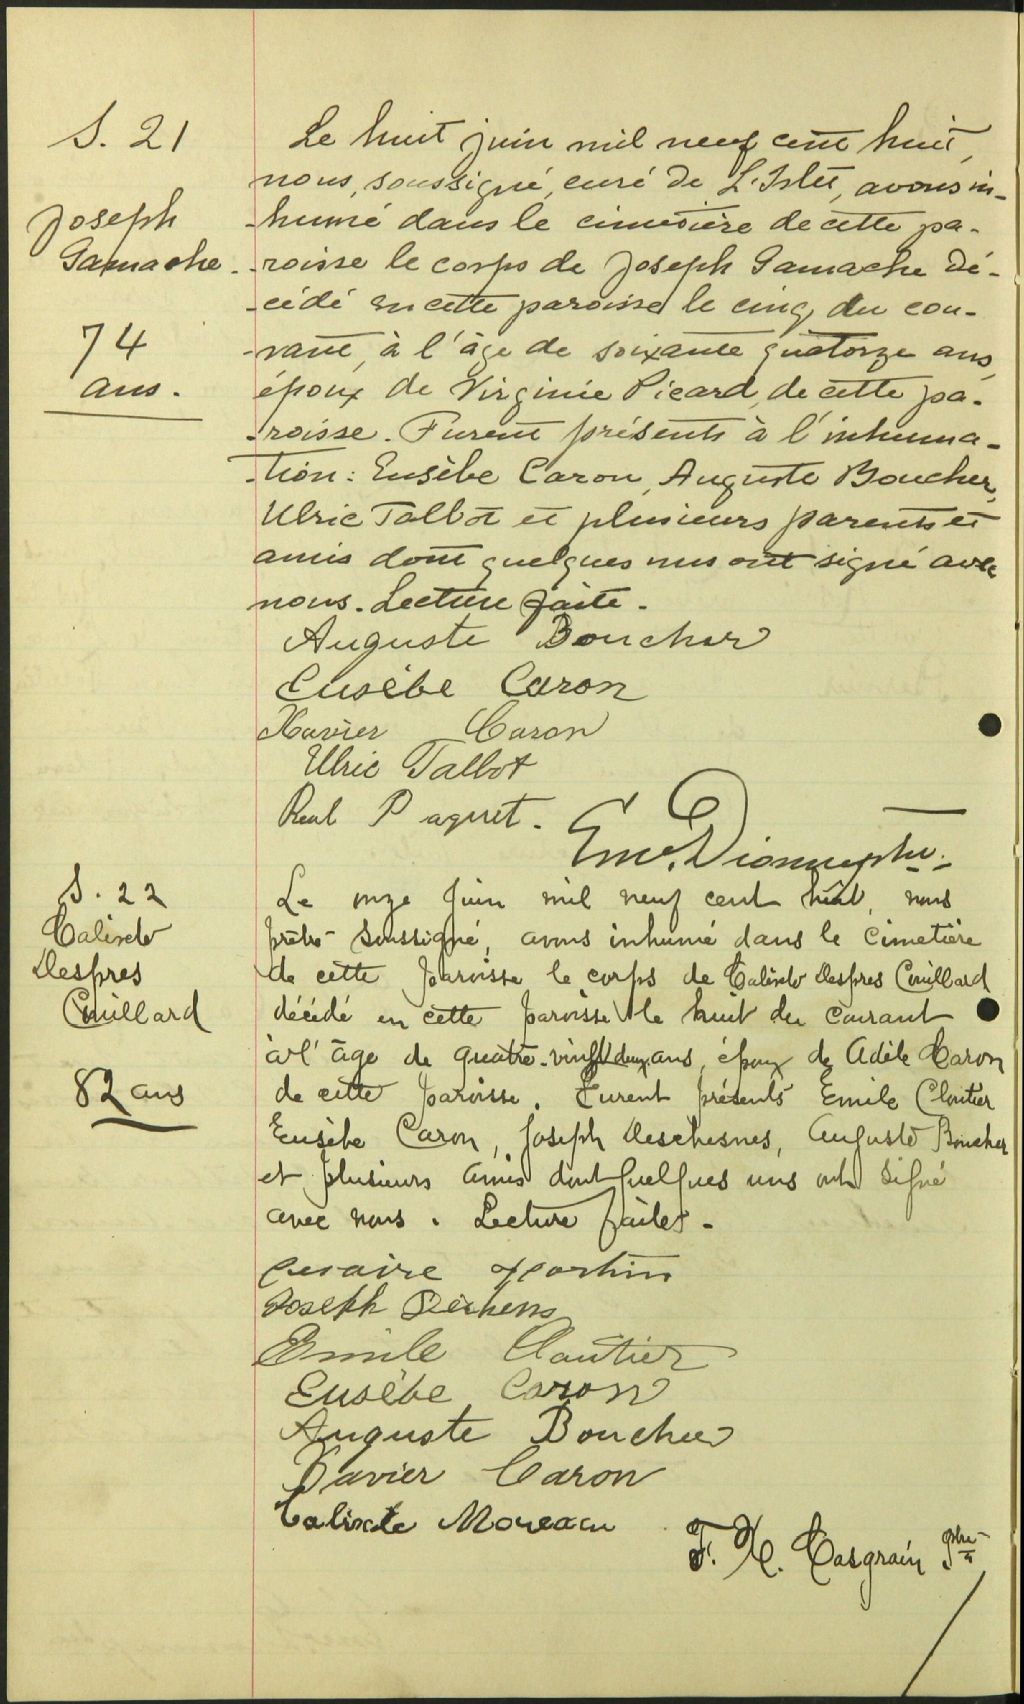 S. 21
Joseph
Gamache.
74
ans.
Le huit juin mil neuf cent huit,
nous, soussigné, curé de L'Islet, avons in-
-humé dans le cimetière de cette pa-
-roisse le corps de Joseph Gamache dé-
-cédé en cette paroisse le cinq du cou-
-rant, à l'âge de soixante quatorze ans,
époux de Virginie Picard, de cette pa-
-roisse. Furent présents à l'inhuma-
-tion: Eusèbe Caron, Auguste Boucher,
Ulric Talbot et plusieurs parents et
amis dont quelques uns ont signé avec
nous. Lecture faite.
Auguste Boucher
Eusèbe Caron
Xavier Caron
Ulric Talbot
Real Paquet.
Em. Dionne ptre.
S. 22
Calixte
Despres
Couillard
82 ans
Le onze Juin mil neuf cent huit, nous
prêtre soussigné, avons inhumé dans le cimetière
de cette paroisse le corps de Calixte Despres Couillard
décédé en cette paroisse le huit du courant
à l'âge de quatre-vingt deux ans, époux de Adèle Caron
de cette paroisse. Furent présents Emile Cloutier
Eusèbe Caron, Joseph Deschesnes, Auguste Boucher
et plusieurs amis dont quelques uns ont signé
avec nous. Lecture faite.
Cesaire Martin
Joseph
Emile Cloutier
Eusèbe Caron
Auguste Boucher
Xavier Caron
Calixte Moreau
F. X. Casgrain ptre